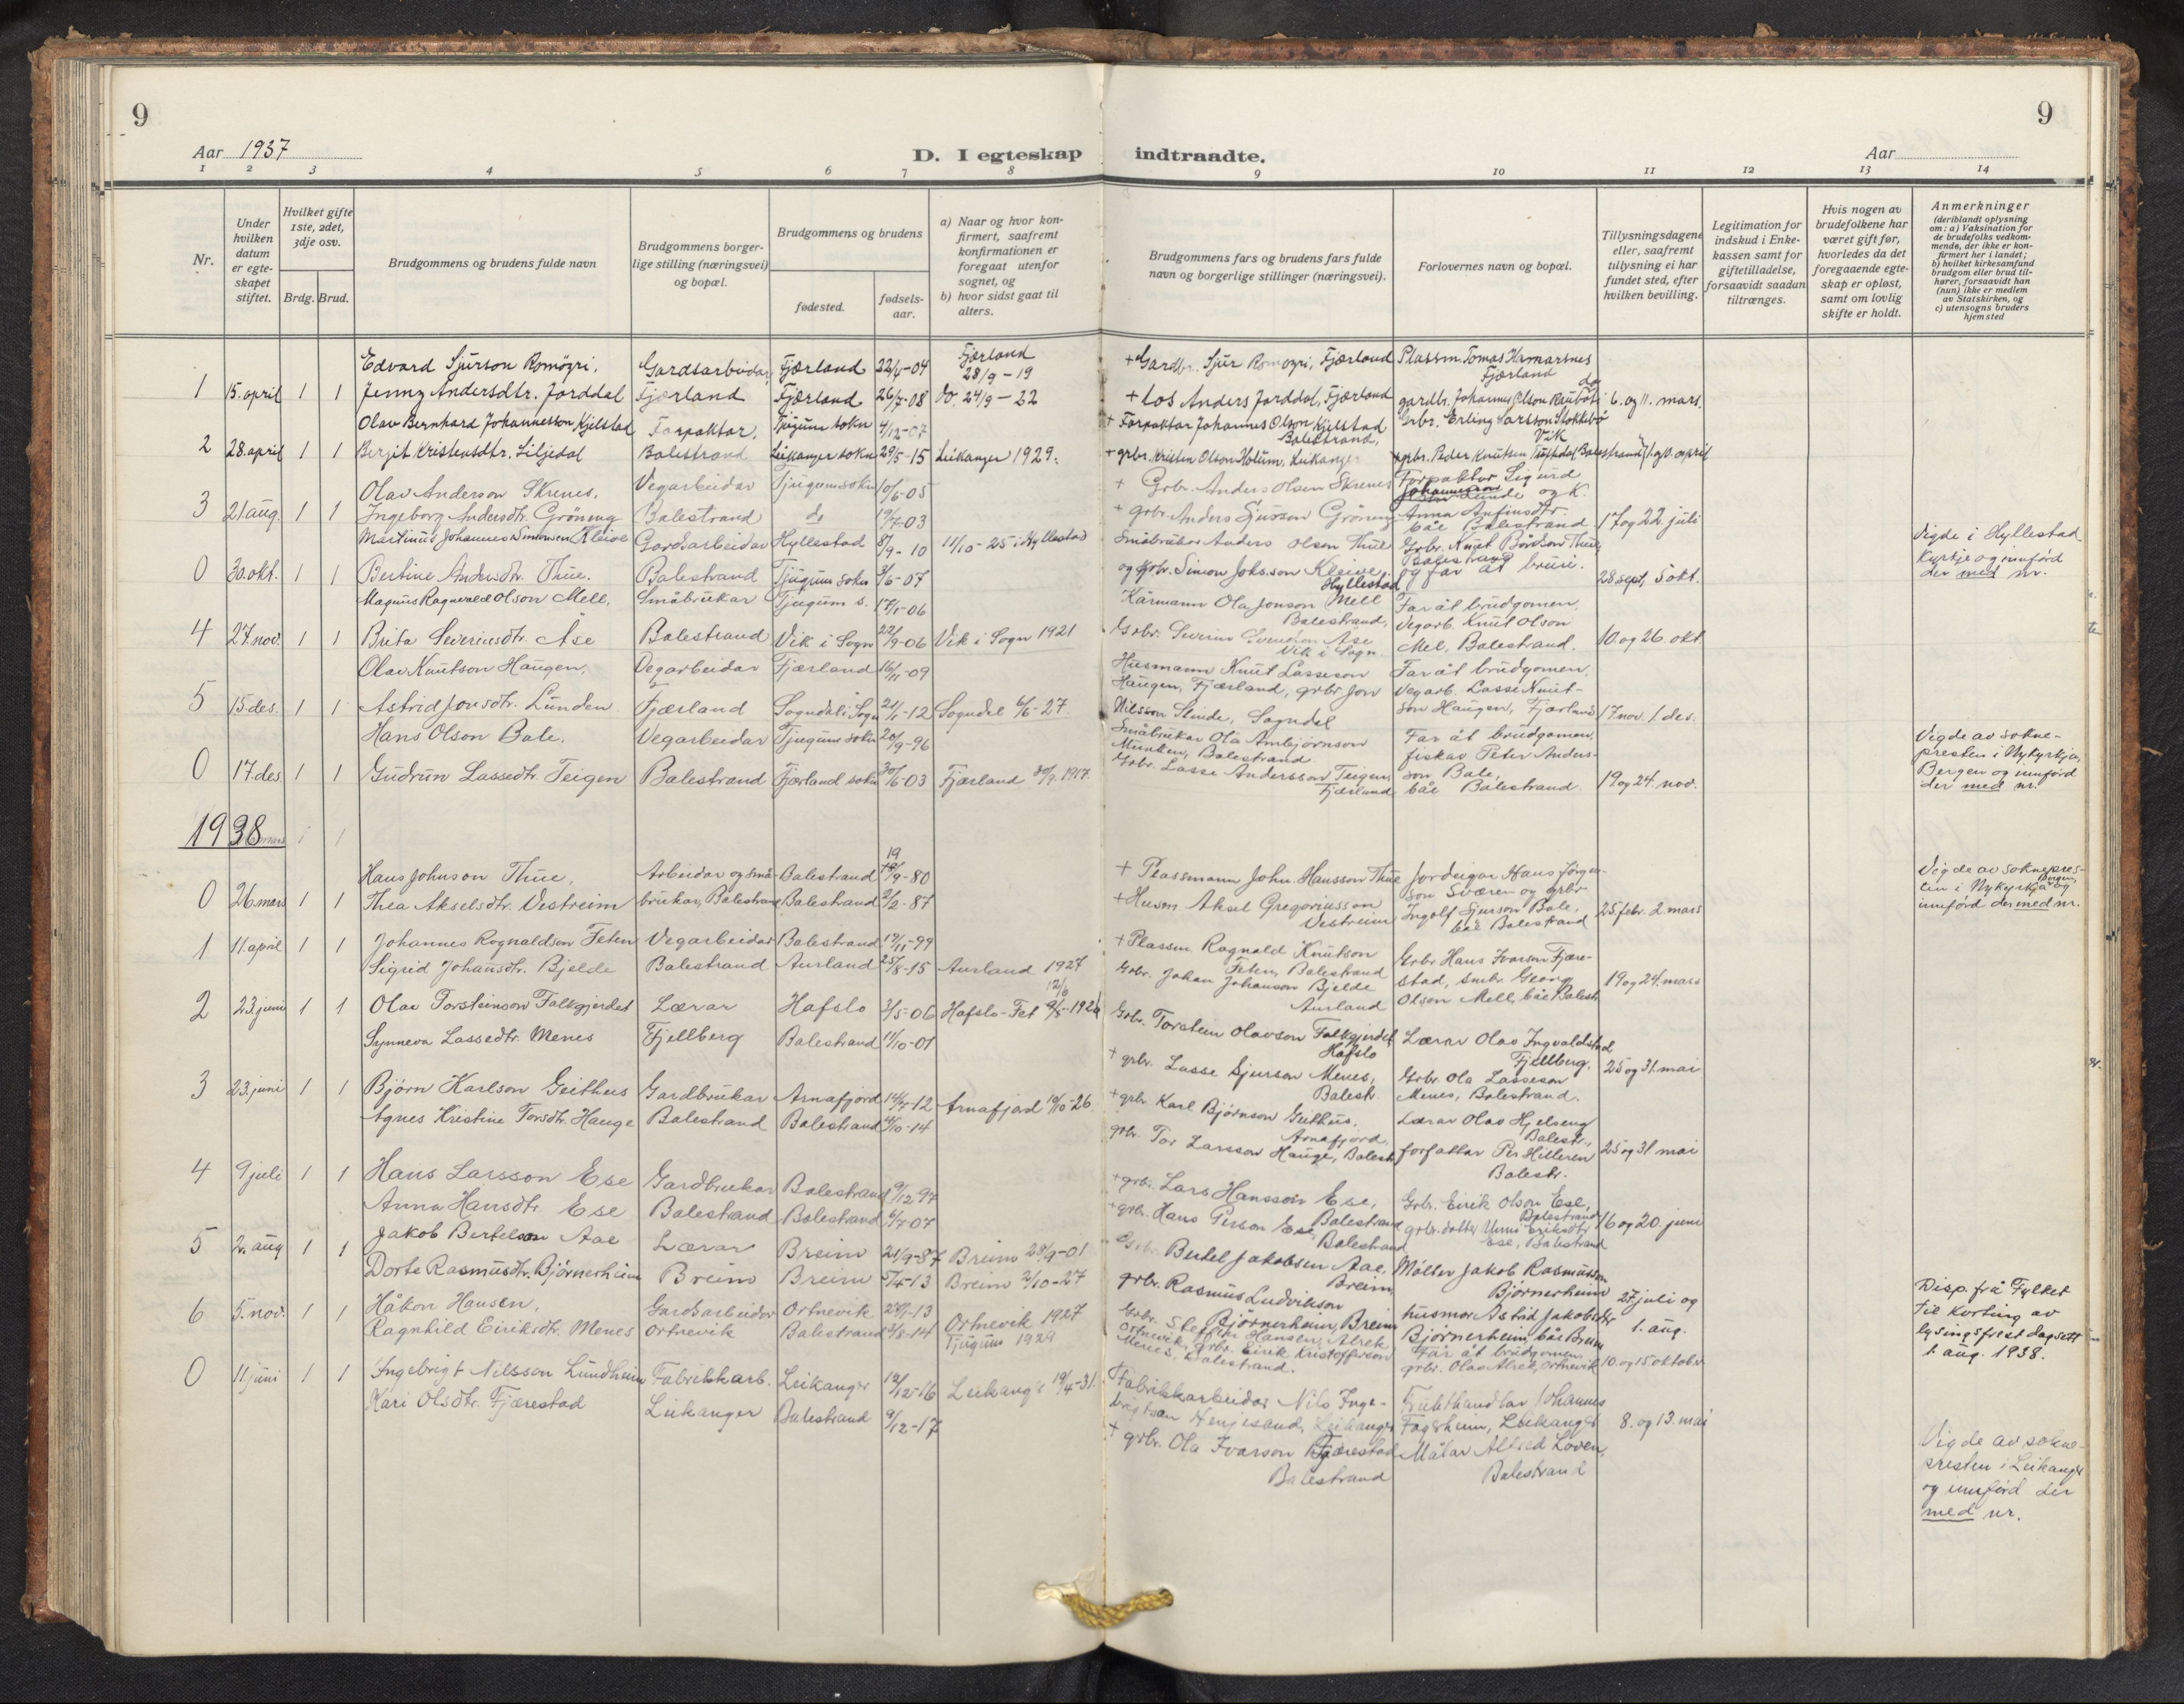 9
9
Aar 1937
D. I egteskap indtraadte.
Aar
1 2 3 4 5 6 7 8 9 10 11 12 13 14
Nr.
Under hvilken datum er egteskapet stiftet.
Hvilket gifte 1ste, 2det, 3dje osv.
Brdg. Brud.
Brudgommens og brudens fulde navn
Brudgommens borgerlige stilling (næringsvei) og bopæl.
Brudgommens og brudens
fødested.
fødselsaar.
a) Naar og hvor konfirmert, saafremt konfirmationen er foregaat utenfor sognet, og
b) hvor sidst gaat til alters.
Brudgommens fars og brudens fars fulde navn og borgerlige stillinger (næringsvei).
Forlovernes navn og bopæl.
Tillysningsdagene eller, saafremt tillysning ei har fundet sted, efter hvilken bevilling.
Legitimation for indskud i Enkekassen samt for giftetilladelse, forsaavidt saadan tiltrænges.
Hvis nogen av brudefolkene har været gift før, hvorledes da det foregaaende egteskap er opløst, samt om lovlig skifte er holdt.
Anmerkninger (deriblandt oplysning om: a) Vaksination for de brudefolks vedkommende, der ikke er konfirmert her i landet; b) hvilket kirkesamfund brudgom eller brud tilhører, forsaavidt han (hun) ikke er medlem av Statskirken, og c) utensogns bruders hjemsted
Edvard Sjurson Romøyri, Gardsarbeidar, Fjærland 22/6-04 Fjærland 28/9-19 + Gardbr. Sjur Romøyri, Fjærland Plassm. Tomas Hamarsnes Fjærland
1 15. april 1 1 Jenny Andersdtr. Jorddal Fjærland Fjærland 26/7-08 Do. 24/9-22 + Los Anders Jorddal, Fjærland gardbr. Johannes Olson 6. og 11. mars.
Olav Bernhard Johannesson Kjelstad Forpaktar, Tjugum sokn 4/12-07 + Forpaktar Johannes Olson Kjelstad Balestrand, Grbr. Erling Larsson Vik
2 28. april 1 1 Bergit Kristensdtr. Liljedal Balestrand Leikanger sokn 29/5-15 Leikanger 1929. + grbr. Kristen Olson Holum, Leikanger grbr. Peder Knutsen Balestrand april
Olav Anderson Skrenes, Vegarbeidar Tjugum sokn 10/6-05 + Grbr. Anders Olsen Skrenes Forpaktar Sigurd Johannesson Lunde og K.
3 21 aug. 1 1 Ingeborg Andersdtr. Grøneng Balestrand do 19/7-03 + grbr. Anders Sjurson Grøneng Anna Anfinsdtr. båe Balestrand 17 og 22. juli
Martinus Johannes Simonsen Kleive Gardsarbeidar Hyllestad 8/9-10 11/10-25 i Hyllestad Småbrukar Anders Olsen Thue Grbr. Knut Bårdson Thue, Balestrand Vigde i Hyllestad
0 30. okt. 1 1 Bertine Andersdtr. Thue. Balestrand Tjugum sokn 3/6-07 og Grbr. Simon Johs.son Kleive, Hyllestad og far åt bruri. 28 sept, 5 okt. kyrkje og innførd der med nr.
Magnus Ragnvald Olson Mell, Småbrukar Tjugum s. 17/1-06 Kårmann Ola Jonson Mell Balestrand, Far åt brudgomen,
4 27. nov. 1 1 Brita Severinsdtr. Åse Balestrand Vik i Sogn 22/9-06 Vik i Sogn 1921 Grbr. Severin Svendsen Åse Vik i Sogn. Vegarb. Knut Olson Mel, Balestrand. 10. og 26. okt.
Olav Knutson Haugen, Vegarbeidar Fjærland 16/11-09 Husmann Knut Lasseson Haugen, Fjærland, grbr Jon Far åt brudgomen,
5 15 des. 1 1 Astrid Jonsdtr. Lunden Fjærland Sogndal i Sogn 21/1-12 Sogndal 6/6-27. Nilsson Slinde, Sogndal Vegarb. Lasse Knutson Haugen, Fjærland 17 nov. 1. des.
Hans Olson Bale, Vegarbeidar Tjugum sokn 20/9-96 Småbrukar Ola Ambjørnson Munken, Balestrand. Far åt brudgomen, fiskar Peter Anderson Bale, Vigde av sokne-
0 17. des. 1 1 Gudrun Lassedtr. Teigen Balestrand Fjærland sokn 30/6-03 Fjærland 30/9-1917. Grbr. Lasse Andersson Teigen, Fjærland båe Balestrand. 19 og 24. nov. presten i Nykyrkja, Bergen og innførd der med nr.
1938
Hans Johnson Thue, Arbeidar og små- Balestrand 19/9-80 + Plassmann John Hansson Thue Jordeigar Hans Jørgenson Sværen og grbr Vigde av soknepres-
0 26. mars 1 1 Thea Akselsdtr. Vestreim brukar, Balestrand Balestrand 2/2-87 + Husm Aksel Gregoriusson Vestreim Ingolf Sjurson Bale, båe Balestrand 25. febr. 2. mars ten i Nykyrkja Bergen, og innførd der med nr.
1 11. april 1 1 Johannes Rognaldson Feten Vegarbeidar Balestrand 19/11-99 + Plassm Rognald Knutson Feten, Balestrand Grbr Hans Ivarson Fjærestad, smbr. Georg
Sigrid Johansdtr. Bjelde Balestrand Aurland 25/8-15 Aurland 1927 Grbr. Johan Johanson Bjelde Aurland Olson Mell, båe Balestr. 19 og 24. mars
2 23. juni 1 1 Olav Torsteinson Falkgjerdet Lærar Hafslo 3/5-06 Hafslo-Fet 12/6 Grbr. Torstein Olavson Falkgjerdet, Hafslo Lærar Olav Ingvaldstad, Fjellberg,
Synneva Lassedtr. Menes Fjellberg Balestrand 11/10-01 + grbr. Lasse Sjurson Menes, Balestr. Grbr. Ola Lasseson Menes, Balestrand. 25 og 31. mai
3 23. juni 1 1 Bjørn Karlson Geithus Gardbrukar Arnafjord 14/7-12 Arnafjord 10/10-26. + grbr Karl Bjørnson Geithus, Arnafjord, Lærar Olav Hjelseng Balestr.,
Agnes Kristine Torsdtr. Hauge Balestrand Balestrand 4/10-14 grbr. Tor Larsson Hauge, Balestr. forfattar Per Hilleren Balestr. 25 og 31. mai
4 9 juli 1 1 Hans Larsson Ese Gardbrukar Balestrand 9/12-97 + grbr. Lars Hansson Ese, Balestrand Grbr. Eirik Olson Ese, Balestrand
Anna Hansdtr. Ese Balestrand Balestrand 6/7-07 + grbr. Hans Person Ese, Balestrand grbr. dotter Unni Eriksdtr. Ese, Balestrand 16 og 20. juni
5 2. aug 1 1 Jakob Bertelson Aae Lærar Breim 21/9-87 Breim 28/9-01 Grbr. Bertel Jakobsen Aae, Breim Møller Jakob Rasmusson Bjørnerheim
Dorte Rasmusdtr. Bjørnerheim Breim Breim 5/4-13 Breim 2/10-27 grbr. Rasmus Ludvikson Bjørnerheim, Breim husmor Astrid Jakobsdtr Bjørnerheim, båe Breim 27 juli og 1. aug. Disp. frå Fylket til korting av lysingsfrest dagsett 1. aug. 1938.
6 5. nov. 1 1 Håkon Hansen, Gardsarbeidar Ortnevik 28/1-13 Ortnevik 1927 Grbr. Steffen Hansen, Alrek Ortnevik, grbr. Eirik Kristofferson Far åt brudgomen
Ragnhild Eiriksdtr. Menes Ortnevik Balestrand 3/8-14 Tjugum 1929 Menes, Balestrand. grbr. Olav Alrek, Ortnevik 10. og 15 oktober
0 11 juni 1 1 Ingebrigt Nilsson Lundheim Fabrikkarb. Leikanger 12/12-16 Leikanger 19/4-31. Fabrikkarbeidar Nils Ingebrigtson Henjesand, Leikanger Frukthandlar Johannes Fagerheim, Leikanger 8. og 13. mai
Kari Olsdtr. Fjærestad Leikanger Balestrand 9/12-17 + grbr. Ola Ivarson Fjærestad Balestrand Målar Alfred Loven, Balestrand Vigde av sokne-
presten i Leikanger
og innførd der
med nr.